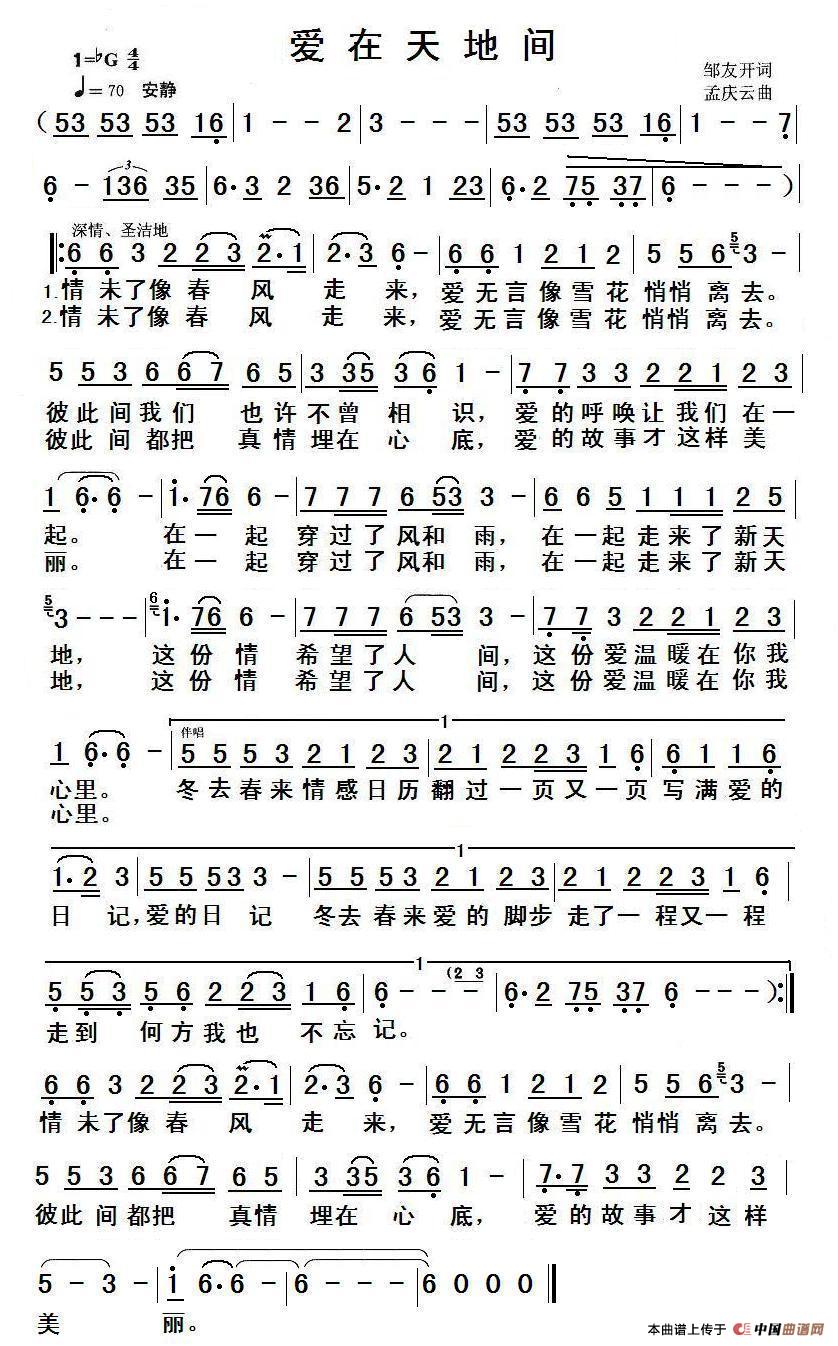 爱在天地间
1=♭G 4/4
邹友开词
♩=70 安静
孟庆云曲
( 53 53 53 16 | 1 - - 2 | 3 - - - | 53 53 53 16 | 1 - - 7 |
6 - 136 35 | 6· 3 2 36 | 5· 2 1 23 | 6· 2 75 37 | 6 - - - )
深情、圣洁地
6 6 3 2 2 3 2· 1 | 2· 3 6 - | 6 6 1 2 1 2 | 5 5 6 3 - |
1.情未了像春风走来,爱无言像雪花悄悄离去。
2.情未了像春风走来,爱无言像雪花悄悄离去。
5 5 3 6 6 7 6 5 | 3 35 3 6 1 - | 7 7 3 3 2 2 1 2 3 |
彼此间我们也许不曾相识,爱的呼唤让我们在一
彼此间都把真情埋在心底,爱的故事才这样美
1 6· 6 - | 1· 76 6 - | 7 7 7 6 53 3 - | 6 6 5 1 1 1 2 5 |
起。在一起穿过了风和雨,在一起走来了新天
丽。在一起穿过了风和雨,在一起走来了新天
5 3 - - - | 6 1· 76 6 - | 7 7 7 6 53 3 - | 7 7 3 2 2 1 2 3 |
地,这份情希望了人间,这份爱温暖在你我
地,这份情希望了人间,这份爱温暖在你我
1
伴唱
1 6· 6 - | 5 5 5 3 2 1 2 3 | 2 1 2 2 3 1 6 | 6 1 1 6 |
心里。冬去春来情感日历翻过一页又一页写满爱的
心里。
1
1· 2 3 | 5 5 53 3 - | 5 5 53 2 1 2 3 | 2 1 2 2 3 1 6 |
日记,爱的日记冬去春来爱的脚步走了一程又一程
1
5 5 3 5 6 2 2 3 1 6 | 6 - - - (2 3 | 6· 2 75 37 6 - - - ) :||
走到何方我也不忘记。
6 6 3 2 2 3 2· 1 | 2· 3 6 - | 6 6 1 2 1 2 | 5 5 6 5 3 - |
情未了像春风走来,爱无言像雪花悄悄离去。
5 5 3 6 6 7 6 5 | 3 35 3 6 1 - | 7· 7 3 3 2 2 3 |
彼此间都把真情埋在心底,爱的故事才这样
5 - 3 - | 1 6· 6 - | 6 - - - | 6 0 0 0 ||
美丽。
本曲谱上传于 中国曲谱网